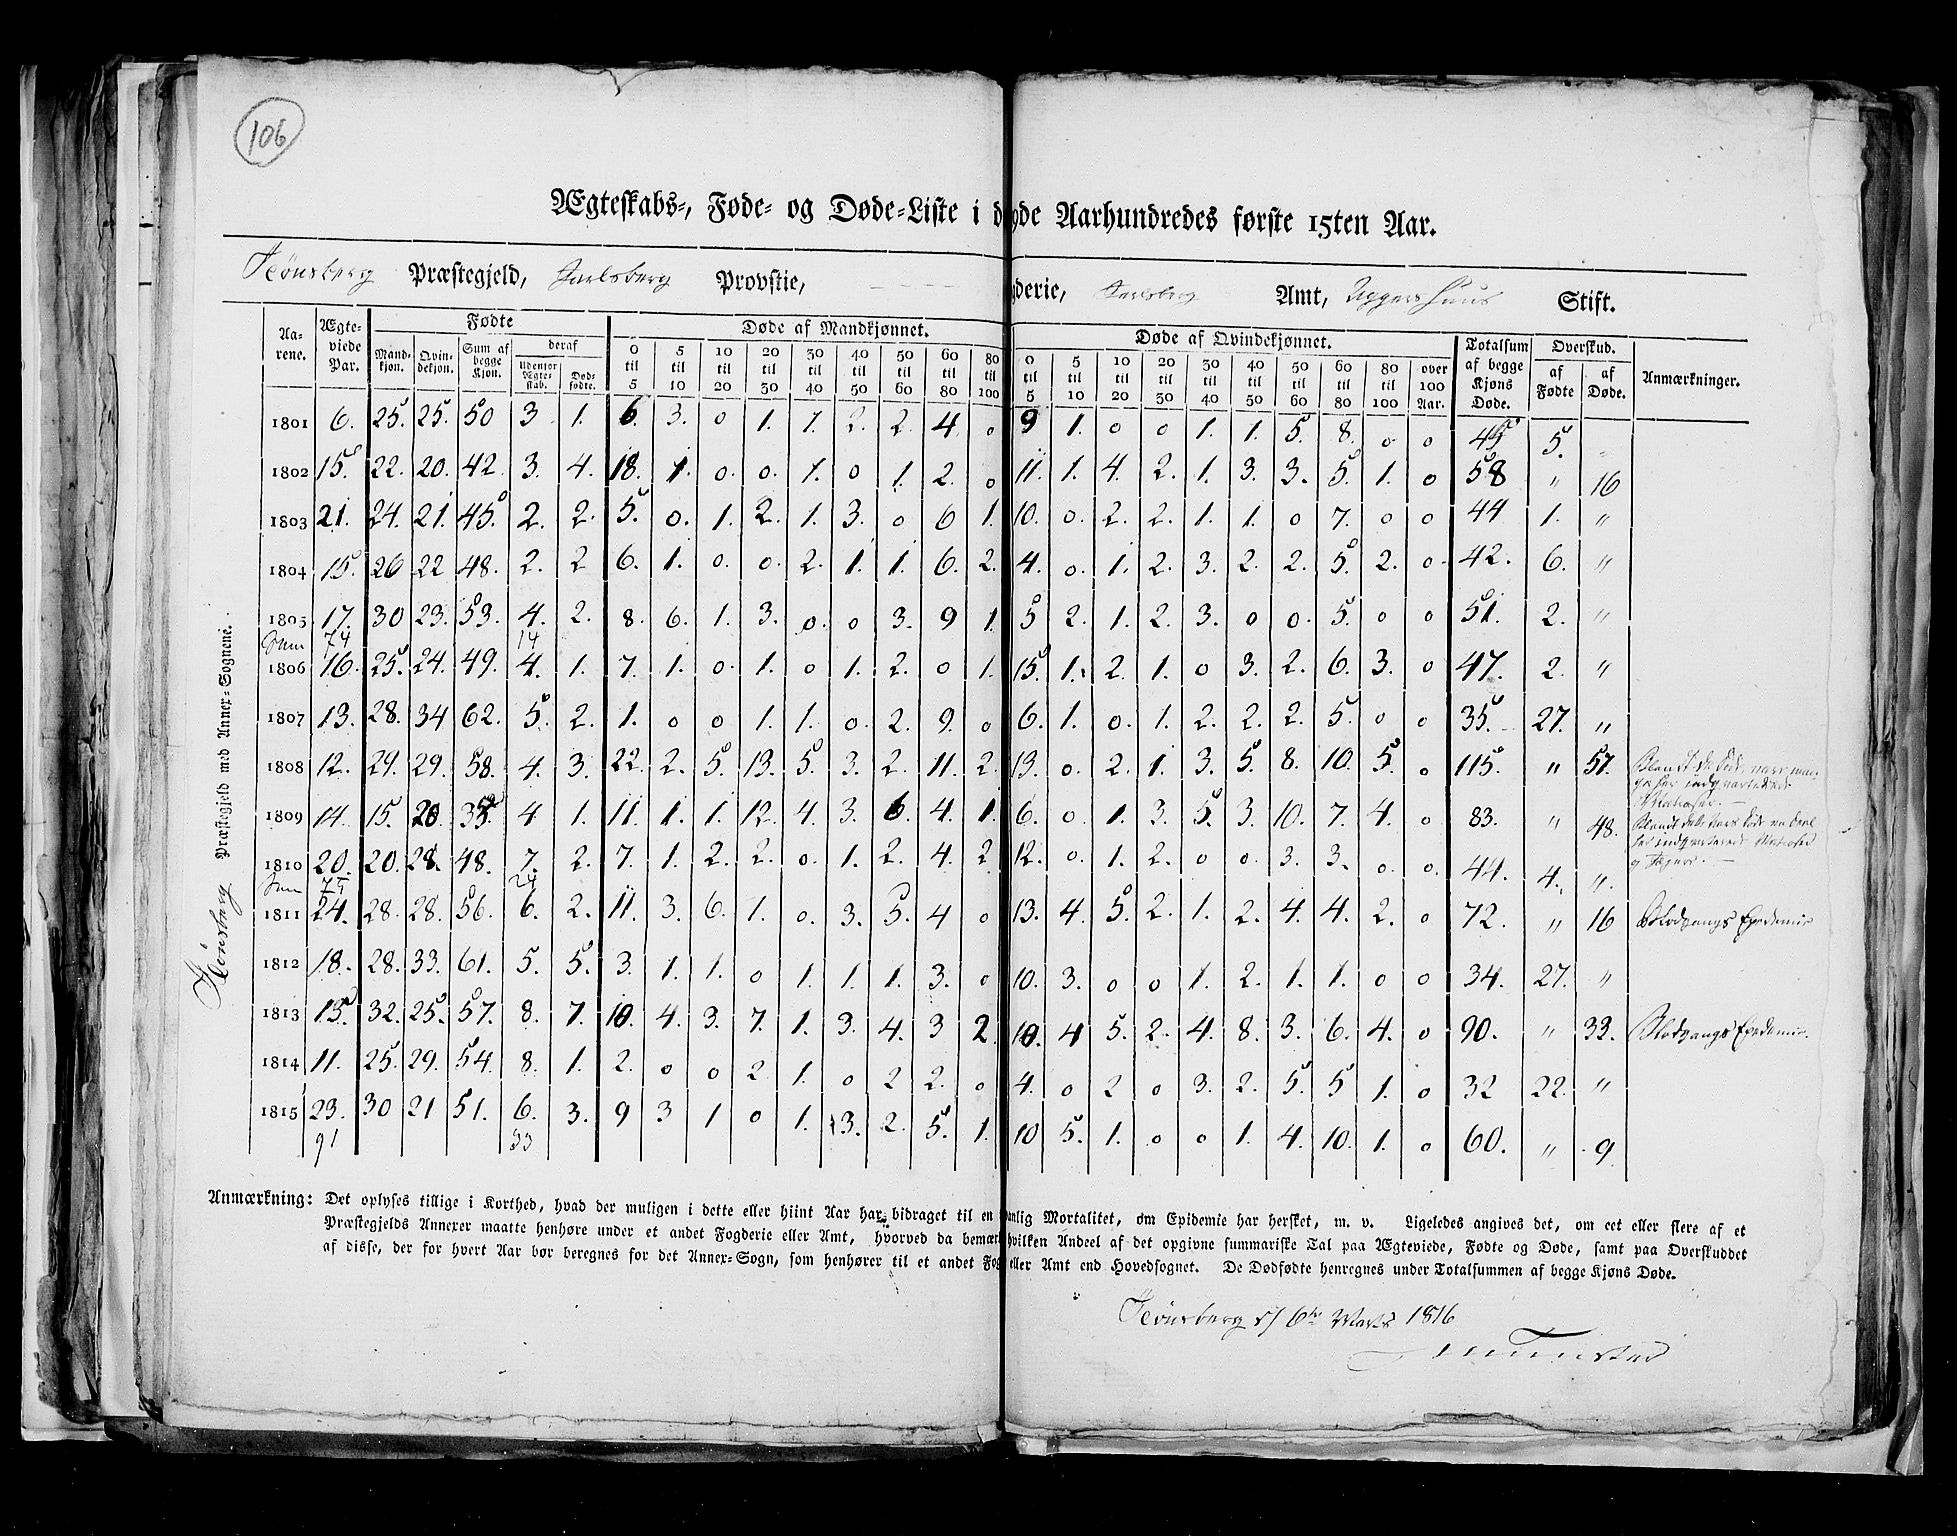 106
Ægteskabs-, Føde- og Døde-Liste i d gde Aarhundredes første 15ten Aar.
Tønsberg Præstegjeld, Jarlsberg Provstie, gderie, Jarlsberg Amt, Aggershuus Stift.
Aarene. Ægteviede Par. Fødte Døde af Mandkjønnet. Døde af Qvindekjønnet. Totalsum af begge Kjøns Døde. Overskud. Anmærkninger.
Mandkjøn. Qvindekjøn. Sum af begge Kjøn. deraf Udenfor Ægtestab. Dødfødte. 0 til 5 5 til 10 10 til 20 20 til 30 30 til 40 40 til 50 50 til 60 60 til 80 80 til 100 0 til 5 5 til 10 10 til 20 20 til 30 30 til 40 40 til 50 50 til 60 60 til 80 80 til 100 over 100 Aar. af Fødte af Døde.
1801 6. 25. 25. 50 3 1. 6. 3. 0 1. 1. 2. 2. 4. 0 9 1. 0 0 1. 1. 5. 8. 0. 0 45 5. "
1802 15. 22. 20. 42. 3. 4. 18. 1. 0. 0. 1. 0 1. 2. 0 11. 1. 4. 2. 1. 3. 3. 5. 1. 0 58 " 16
1803 21. 24. 21. 45. 2. 2. 5. 0. 1. 2. 1. 3. 0 6 1. 10. 0. 2. 2. 1. 1. 0 7. 0 0 44 1. "
1804 15. 26 22 48. 2. 2 6. 1. 0. 0. 2. 1. 1. 6. 2. 4. 0. 1. 2. 3. 2. 2. 5. 2. 0. 42. 6. "
1805 17. 30 23. 53. 4. 2. 8. 6. 1. 3. 0. 0 3. 9 1. 5 2. 1. 2. 3. 0 0. 5. 0 0 51. 2. "
Sum 74 14
1806 16. 25. 24. 49. 4. 1. 7. 1. 0. 1. 0 1. 2. 0 1. 15. 1. 2. 1. 0 3. 2. 6. 3. 0 47. 2. "
1807 13. 28. 34 62. 5. 2. 1. 0 0 1. 1. 0. 2. 9. 0 6. 1. 0. 1. 2. 2. 2. 5. 0 0 35. 27. "
1808 12. 29. 29. 58. 4. 3. 22. 2. 5. 13. 5. 3. 2. 11. 2. 13. 0. 2. 1. 3. 5. 8. 10. 5. 0 115. " 57.
1809 14. 15. 20. 35. 4 1. 11. 1. 1. 12. 4. 3. 6. 4. 1. 6. 0. 1. 3. 5. 3. 10. 7. 4. 0 83. " 48.
1810 20. 20. 28. 48. 7. 2. 7. 1. 2. 2. 0. 1. 2. 4. 2 12. 0. 1. 2. 0 0. 3. 3. 0 0. 44. 4. "
Sum 75 24
1811 24. 28. 28. 56. 6. 2. 11. 3. 6. 1. 0. 3. 5. 4 0 13. 4. 5. 2. 1. 2. 4. 4. 2. 0 72. " 16 Blodgangs Epedemie
1812 18. 28. 33. 61. 5. 5. 3. 1. 1. 0 1. 1. 1. 3. 0 10. 3. 0 0 1. 2. 1. 1. 0 0 34. 27. "
1813 15. 32. 25. 57. 8. 7. 10. 4. 3. 7. 1. 3. 4. 3 2. 10. 4 5. 2. 4. 8. 3. 6. 4. 0 90. " 33. Blodgangs Epedemie.
1814 11. 25. 29. 54. 8. 1. 2. 0 0 2 1. 0 2 2. 0 4. 0 2 0 3. 2. 5. 5 1. 0 32 22. "
1815 23. 30 21 51. 6. 3. 9 3 1 0 1. 3. 2. 5. 1. 10 5. 1. 0 0 1. 4. 10. 1. 0 60. " 9
91 33
Tønsberg Præstegjeld med Annex-Sognene.
Anmærkning: Det oplyses tillige i Korthed, hvad der muligen i dette eller hiint Aar har bidraget til en anlig Mortalitet, om Epidemie har hersket, m. v. Ligeledes angives det, om eet eller flere af et
Præstegjelds Annexer maatte henhøre under et andet Fogderie eller Amt, hvorved da bemærk hvilken Andeel af det opgivne summariske Tal paa Ægteviede, Fødte og Døde, samt paa Overskuddet
af disse, der for hvert Aar bør beregnes for det Annex-Sogn, som henhører til et andet Fog eller Amt end Hovedsognet. De Dødfødte henregnes under Totalsummen af begge Kjøns Døde.
Tønsberg d 6te Marts 1816